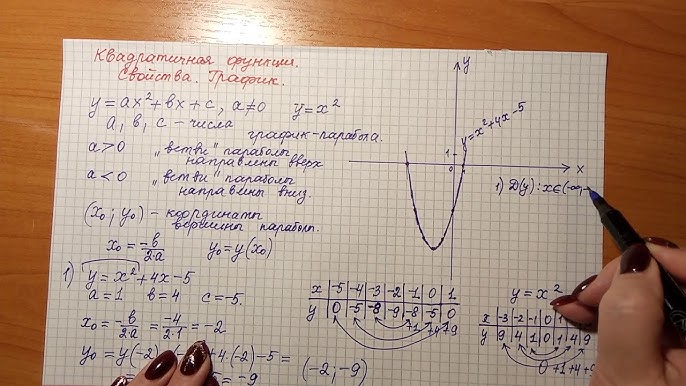 Квадратичная функция.
Свойства. График.
y = ax² + bx + c, a ≠ 0   y = x²
a, b, c – числа
график – парабола.
a > 0 „ветви“ параболы
направлены вверх
a < 0 „ветви“ параболы
направлены вниз.
(x₀; y₀) – координаты
вершины параболы.
x₀ = -b/2·a   y₀ = y(x₀)
1) y = x² + 4x - 5
a = 1   b = 4   c = -5.
x₀ = -b/2·a = -4/2·1 = -2
y₀ = y(-2) + 4·(-2) - 5 =
= -9
(-2; -9)
y
1
0
x
y = x² + 4x - 5
1) D(y): x ∈ (-∞;
x -5 -4 -3 -2 -1 0 1
y 0 -5 -8 -9 -8 -5 0
+1 +4 +9
y = x²
x -3 -2 -1 0 1
y 9 4 1 0 1 4 9
0 +1 +4 +9